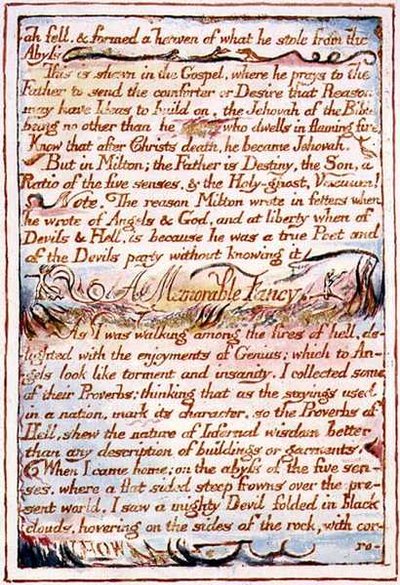 ah fell, & formed a heaven of what he stole from the
Abyss
This is shewn in the Gospel, where he prays to the
Father to send the comforter or Desire that Reason
may have Ideas to build on, the Jehovah of the Bible
being no other than he who dwells in flaming fire
Know that after Christs death, he became Jehovah.
But in Milton; the Father is Destiny, the Son, a
Ratio of the five senses, & the Holy-ghost, Vacuum!
Note. The reason Milton wrote in fetters when
he wrote of Angels & God, and at liberty when of
Devils & Hell, is because he was a true Poet and
of the Devils party without knowing it
A Memorable Fancy
As I was walking among the fires of hell, de-
lighted with the enjoyments of Genius; which to An-
gels look like torment and insanity. I collected some
of their Proverbs: thinking that as the sayings used
in a nation, mark its character, so the Proverbs of
Hell, shew the nature of Infernal wisdom better
than any description of buildings or garments
When I came home; on the abyss of the five sen-
ses, where a flat sided steep frowns over the pre-
sent world. I saw a mighty Devil folded in black
clouds, hovering on the sides of the rock, with cor-
HOW ro-